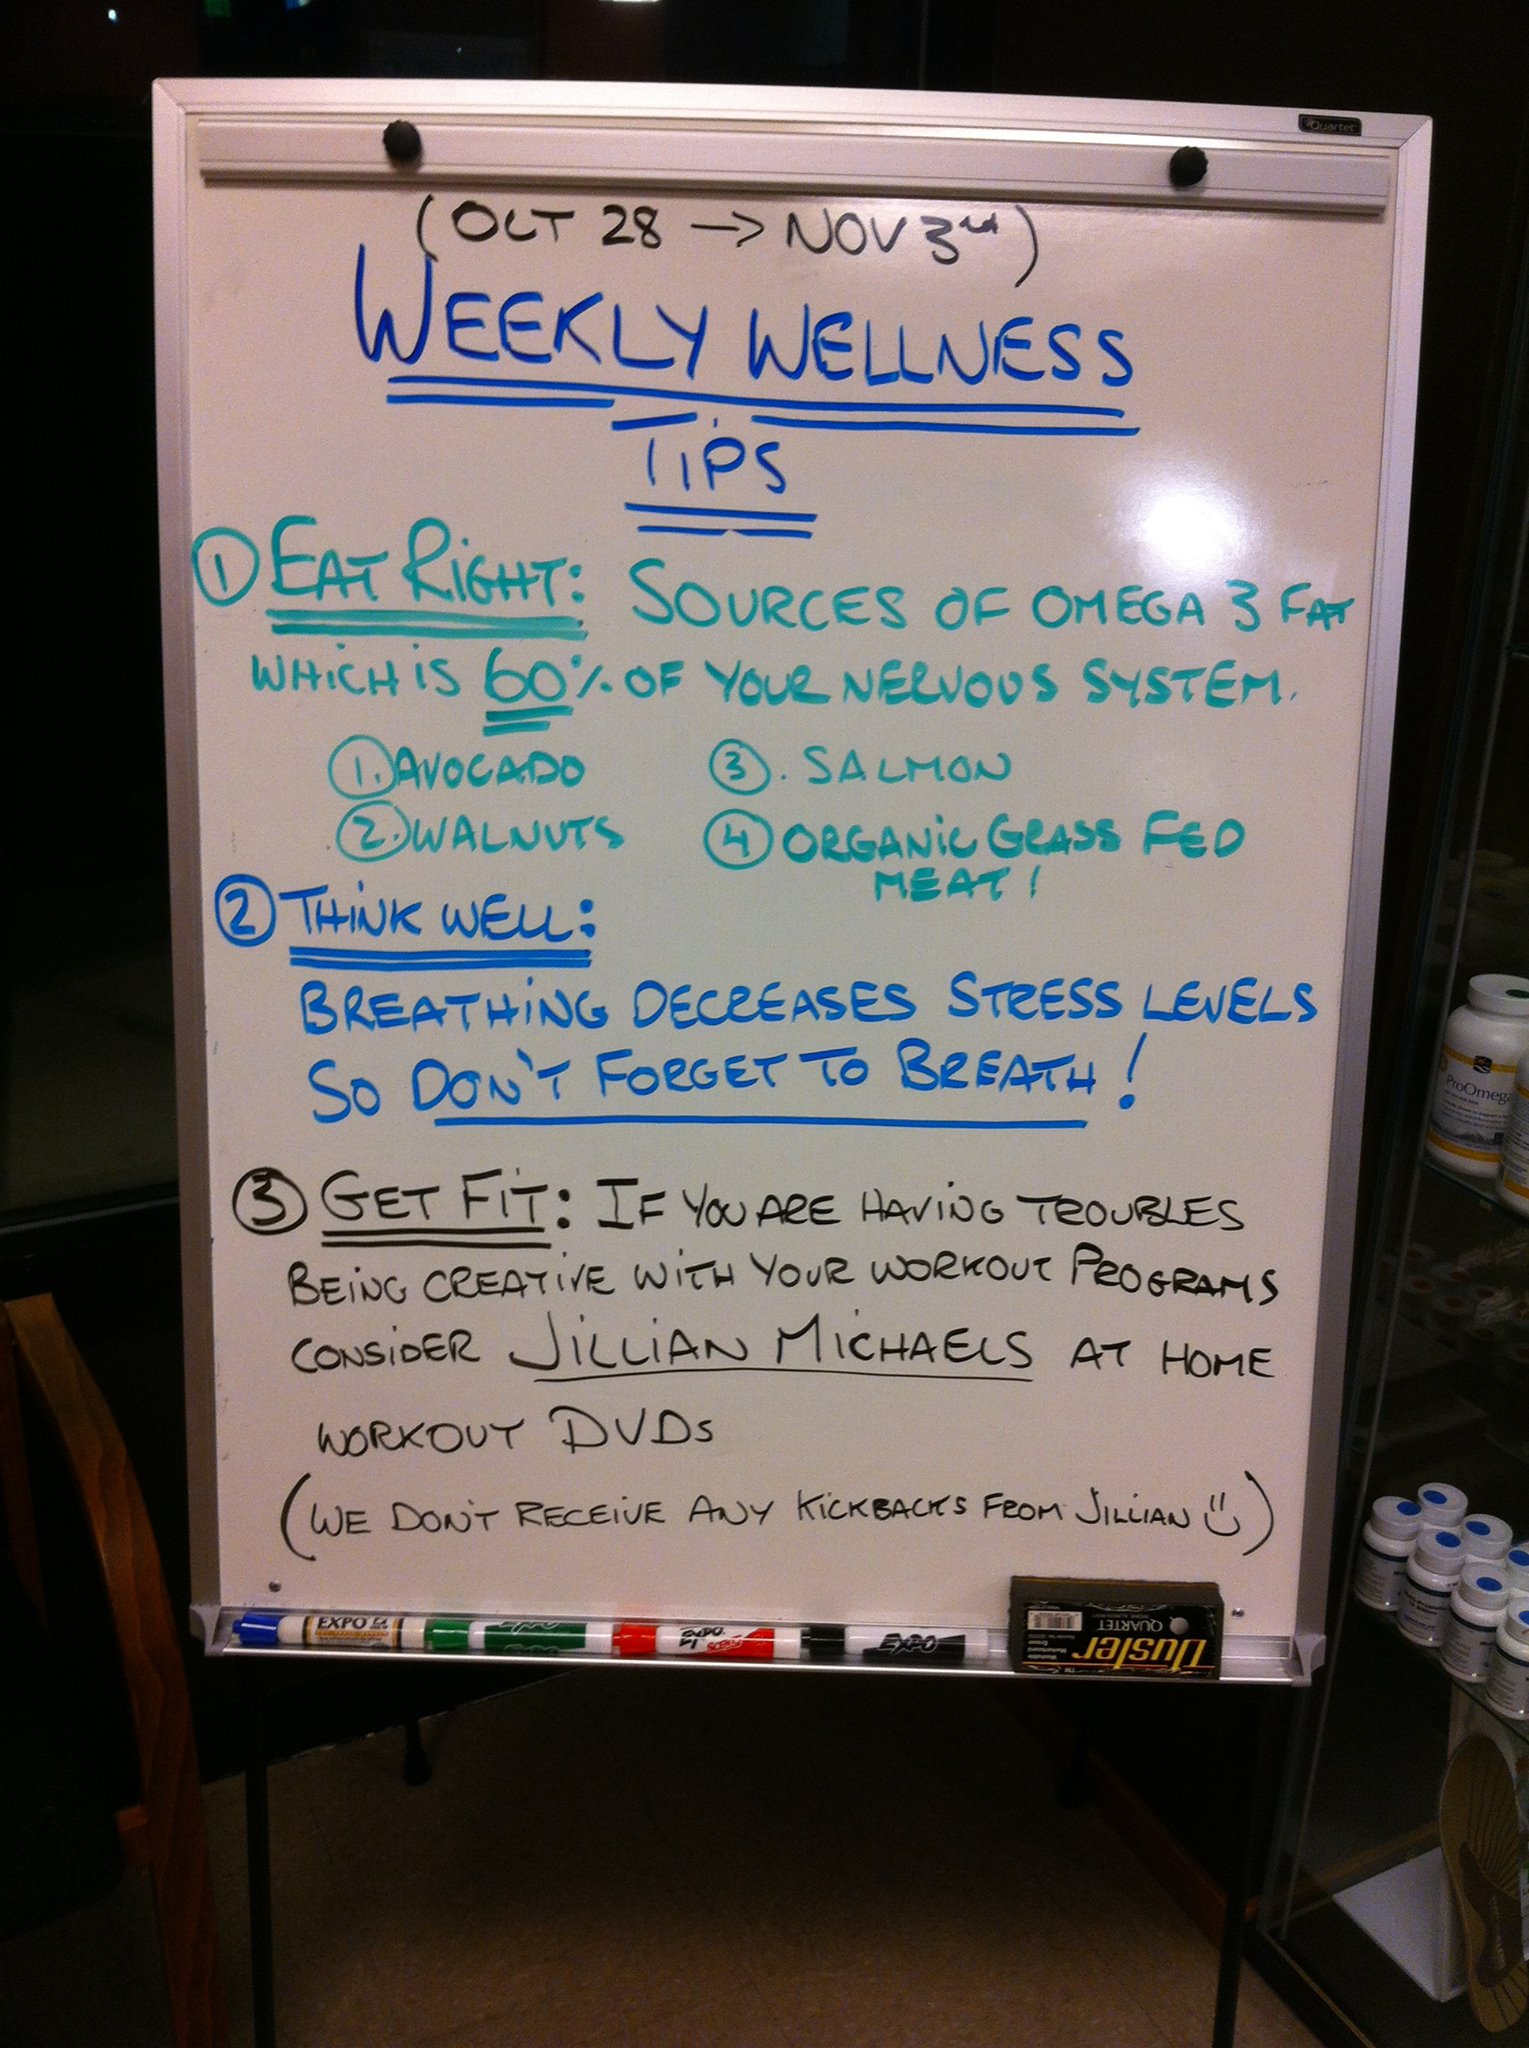 Quartet
(OCT 28 -> NOV 3rd)
WEEKLY WELLNESS
TiPS
1 EAT RiGHT: SOURCES OF OMEGA 3 FAT
WHiCH iS 60% OF YOUR NERVOUS SYSTEM.
1. AVOCADO
2. WALNUTS
3. SALMON
4 ORGANiC GRASS FED
MEAT!
2 THiNK WELL:
BREATHiNG DECREASES STRESS LEVELS
SO DON'T FORGET TO BREATH!
3 GET FiT: IF YOU ARE HAViNG TROUBLES
BEiNG CREATiVE WiTH YOUR WORKOUT PROGRAMS
CONSiDER JiLLiAN MiCHAELS AT HOME
WORKOUT DVDs
(WE DON'T RECEiVE ANY KiCKBACKS FROM JiLLiAN)
EXPO
EXPO
EXPO
EXPO
QUARTET
Duster
ProOmega